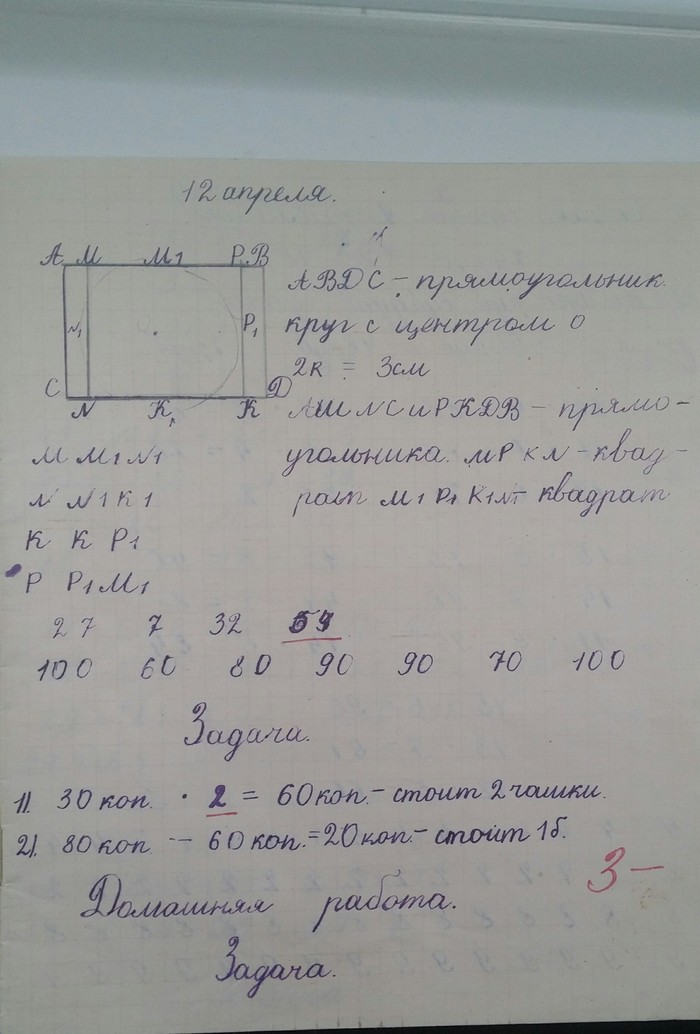 12 апреля.
А М М1 Р. В
N1 Р1
С N К1 К D
АВDС – прямоугольник.
круг с центром О
2R = 3см
АМNС и РКDВ – прямо-
угольника. МРКN – квад-
рат М1 Р1 К1 N1 – квадрат
М М1 N1
N N1 К1
К К Р1
Р Р1 М1
27 7 32 59
100 60 80 90 90 70 100
Задача.
1). 30 коп. · 2 = 60 коп. – стоит 2 чашки.
2). 80 коп – 60 коп. = 20 коп. – стоит 1б.
3 –
Домашняя работа.
Задача.